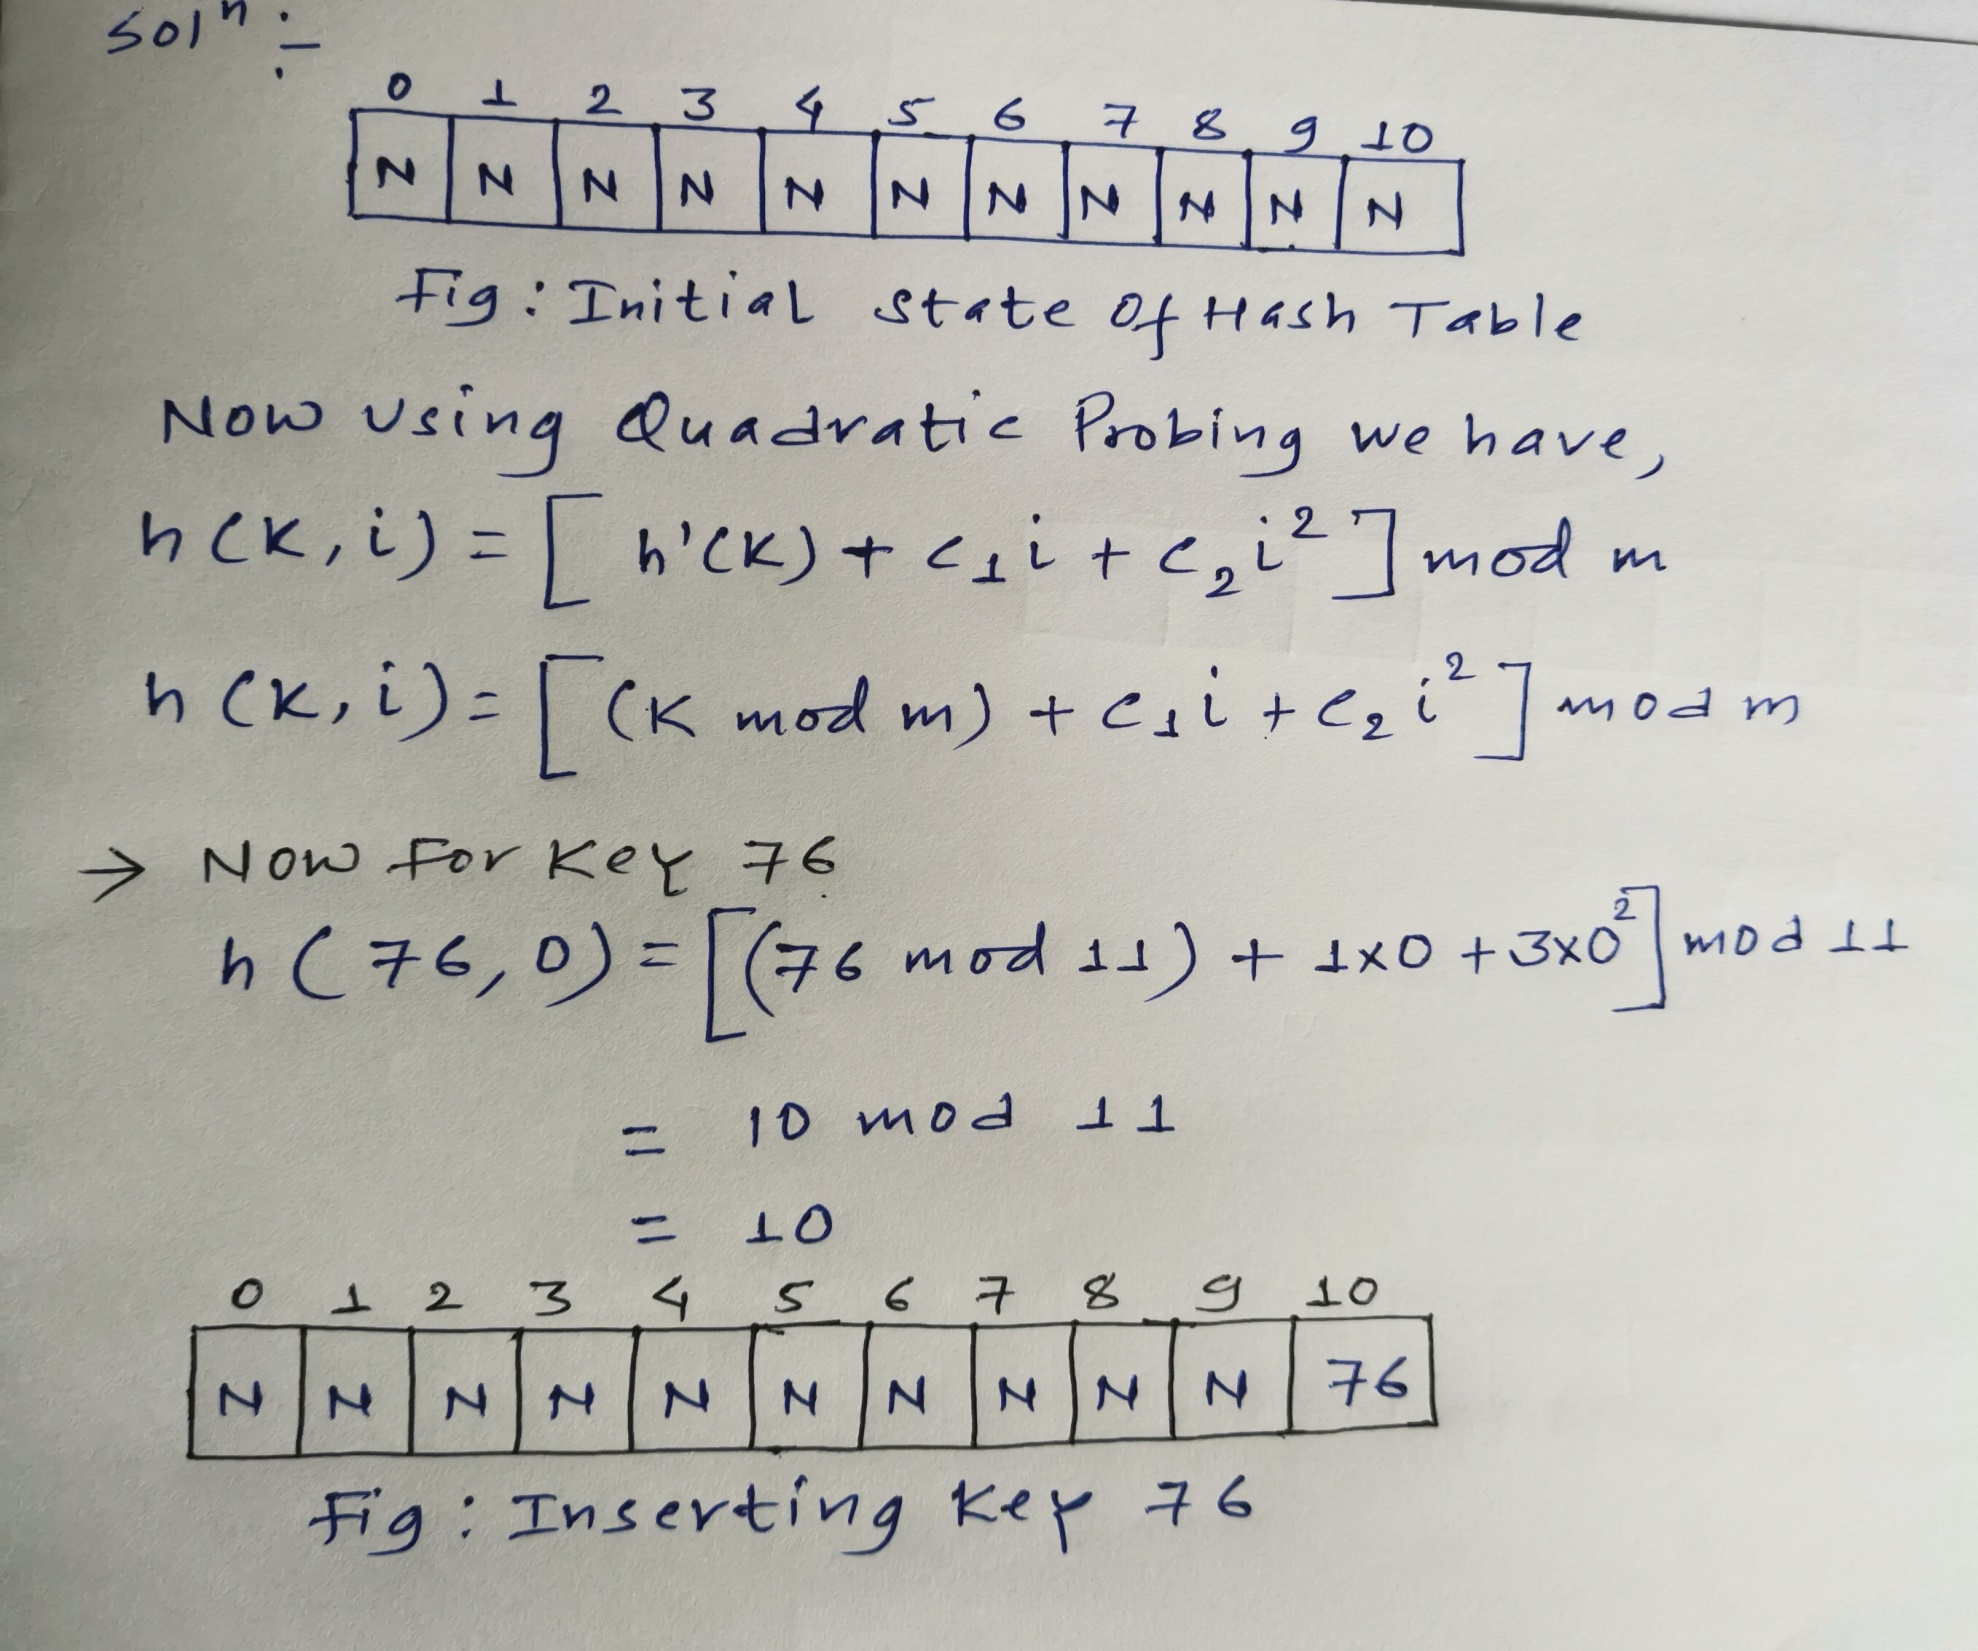 Solⁿ :-
0 1 2 3 4 5 6 7 8 9 10
N N N N N N N N N N N
Fig : Initial state Of Hash Table
Now Using Quadratic Probing we have,
h(K, i) = [ h'(K) + c₁i + c₂i² ] mod m
h(K, i) = [ (K mod m) + c₁i + c₂i² ] mod m
→ Now For Key 76
h(76, 0) = [(76 mod 11) + 1×0 + 3×0²] mod 11
= 10 mod 11
= 10
0 1 2 3 4 5 6 7 8 9 10
N N N N N N N N N N 76
Fig : Inserting Key 76